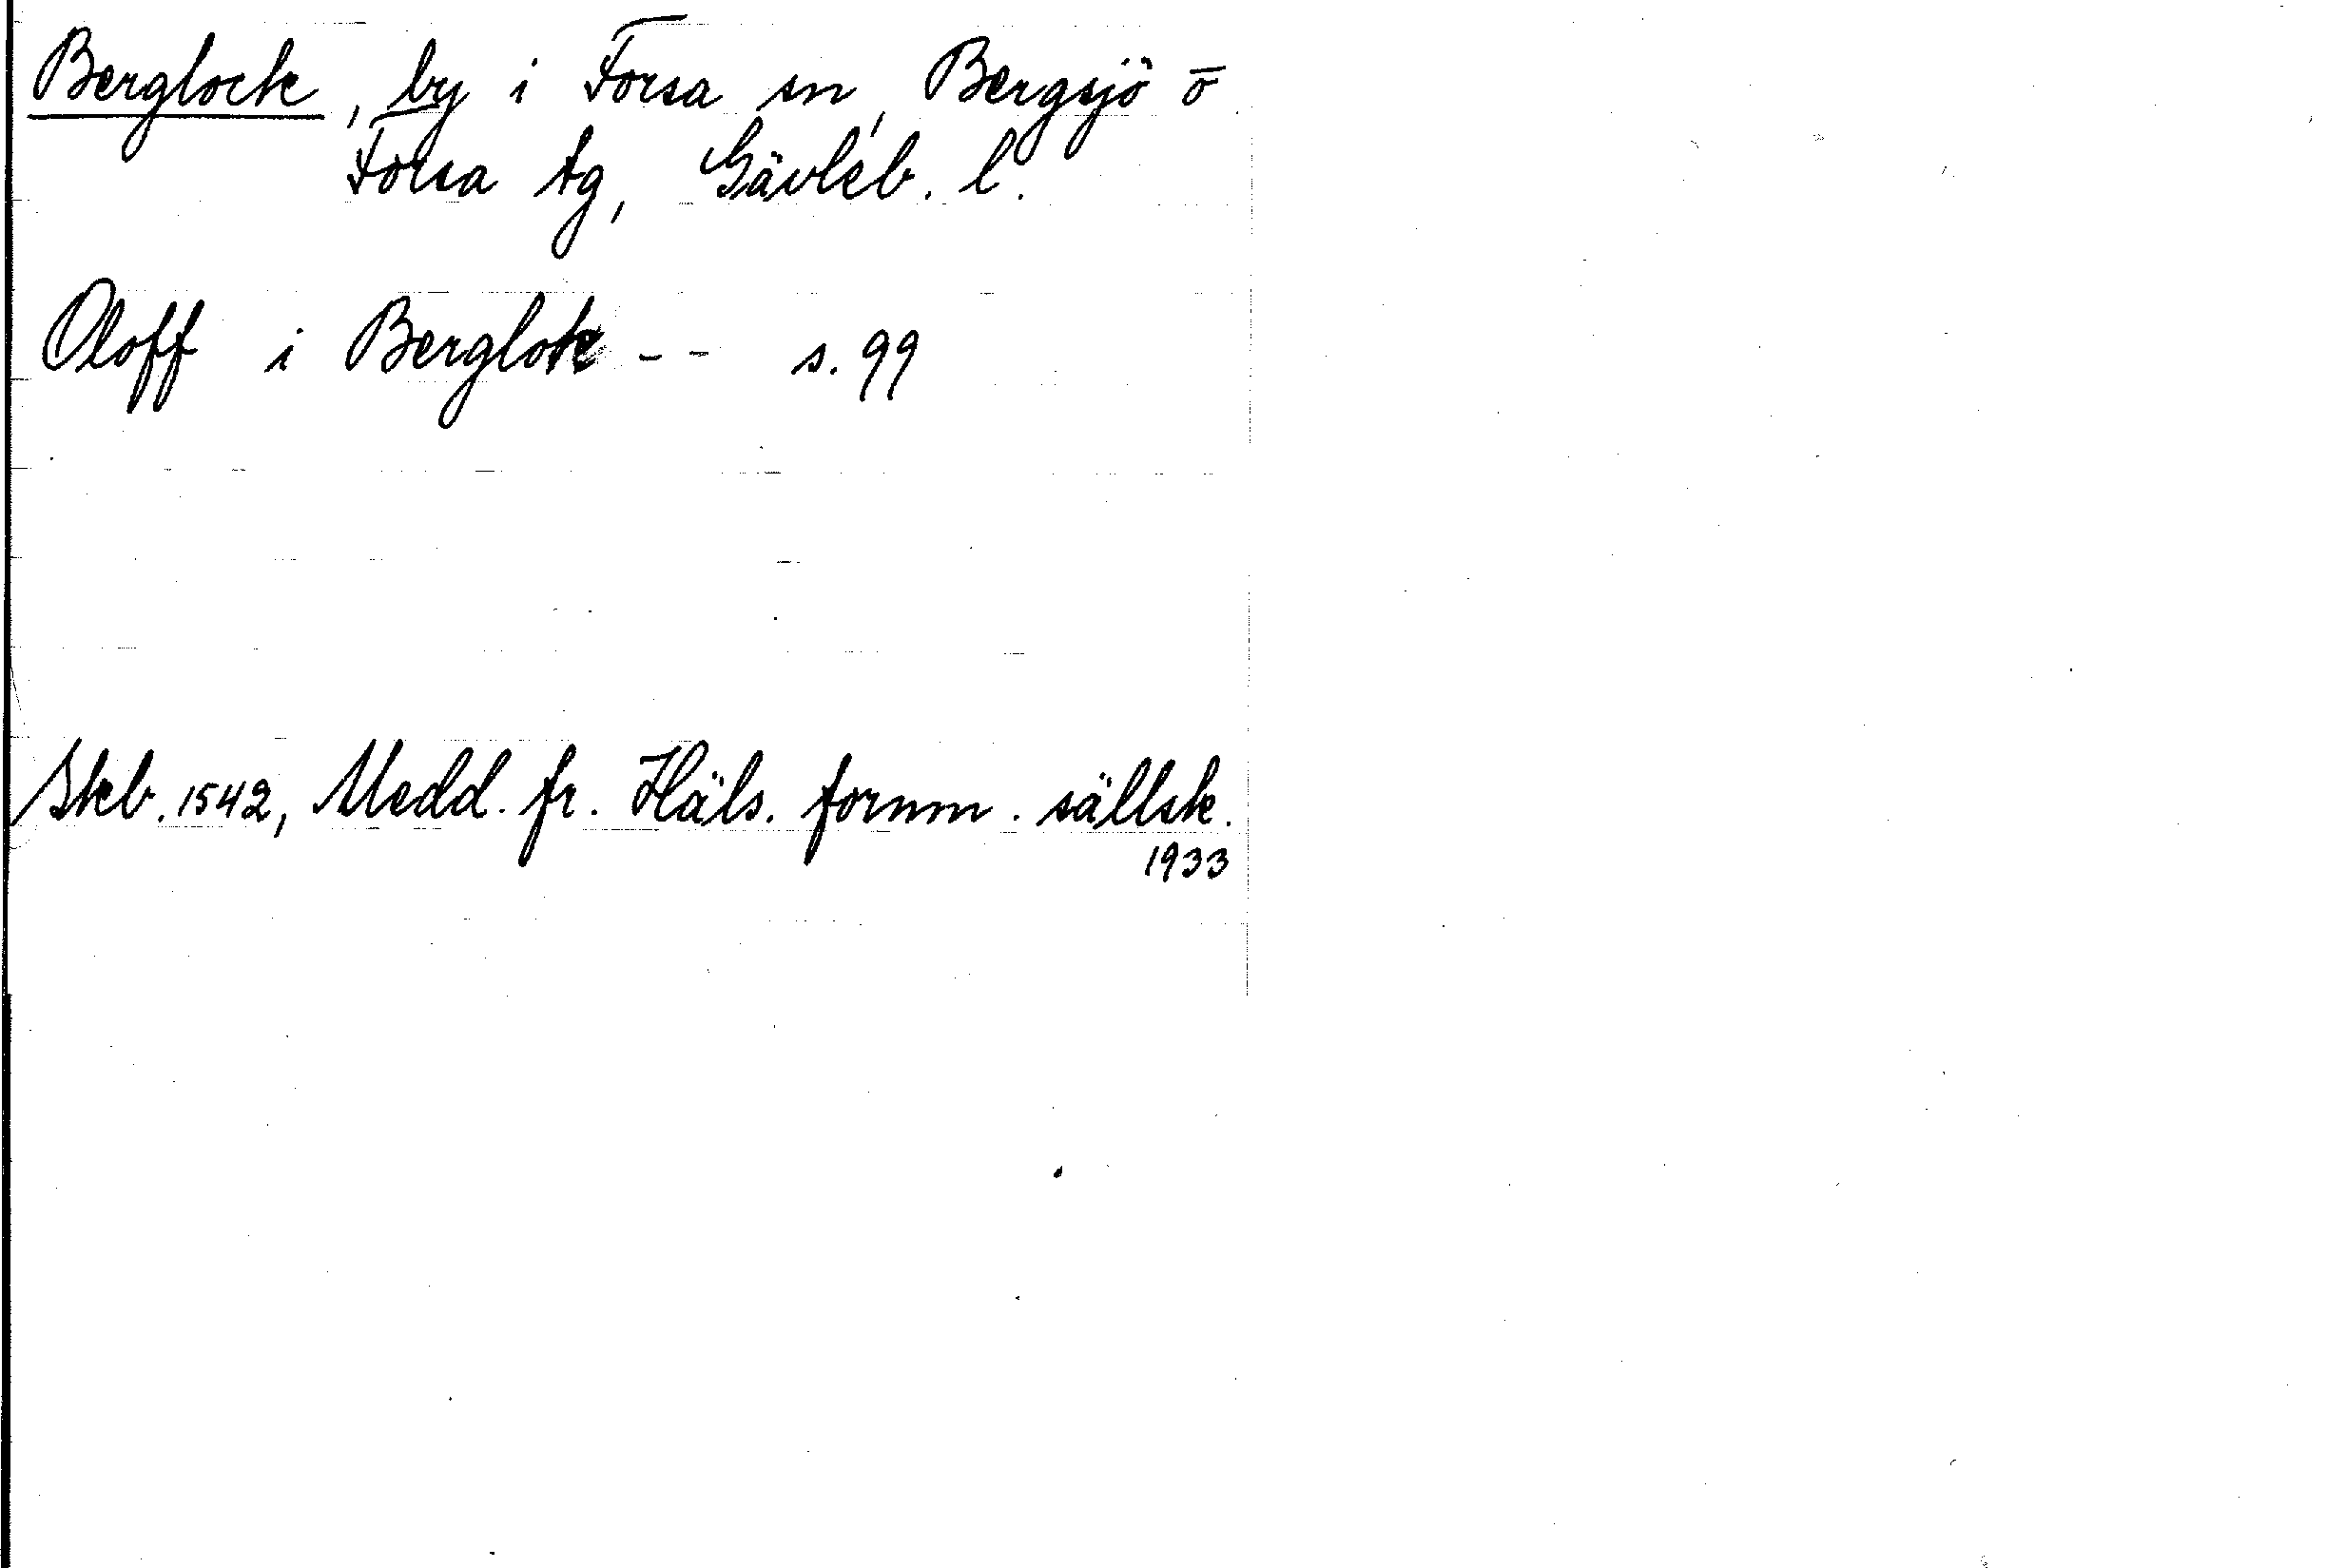 Berglock, by i Forsa sn, Bergsjö o
Forsa tg, Gävleb. l.
Oloff i Berglok -- s. 99
Skb. 1542, Medd. fr. Häls. fornm. sällsk.
1933